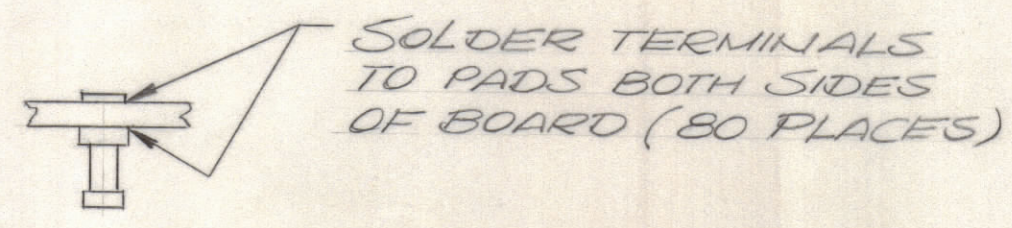 SOLDER TERMINALS
TO PADS BOTH SIDES
OF BOARD (80 PLACES)